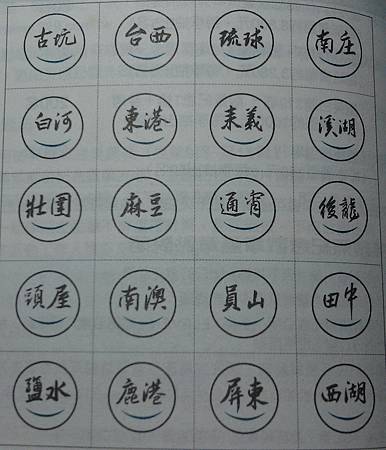 古坑 台西 琉球 南庄
白河 東港 未義 溪湖
壯圍 麻豆 通宵 後龍
頭屋 南澳 員山 田中
鹽水 鹿港 屏東 西湖